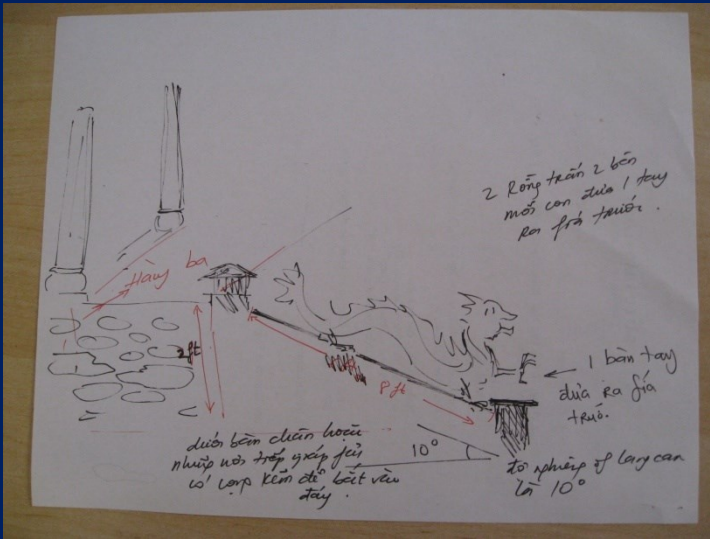 2 Rồng trấn 2 bên
mỗi con đưa 1 tay
ra fía trước.
Hàng ba
2ft
8 ft
1 bàn tay
đưa ra fía
trướ.
10°
dưới bàn chân hoặc
những nơi tiếp giáp fải
có
kẽm để bắt vào
đây.
độ nghiêng of lang can
là 10°